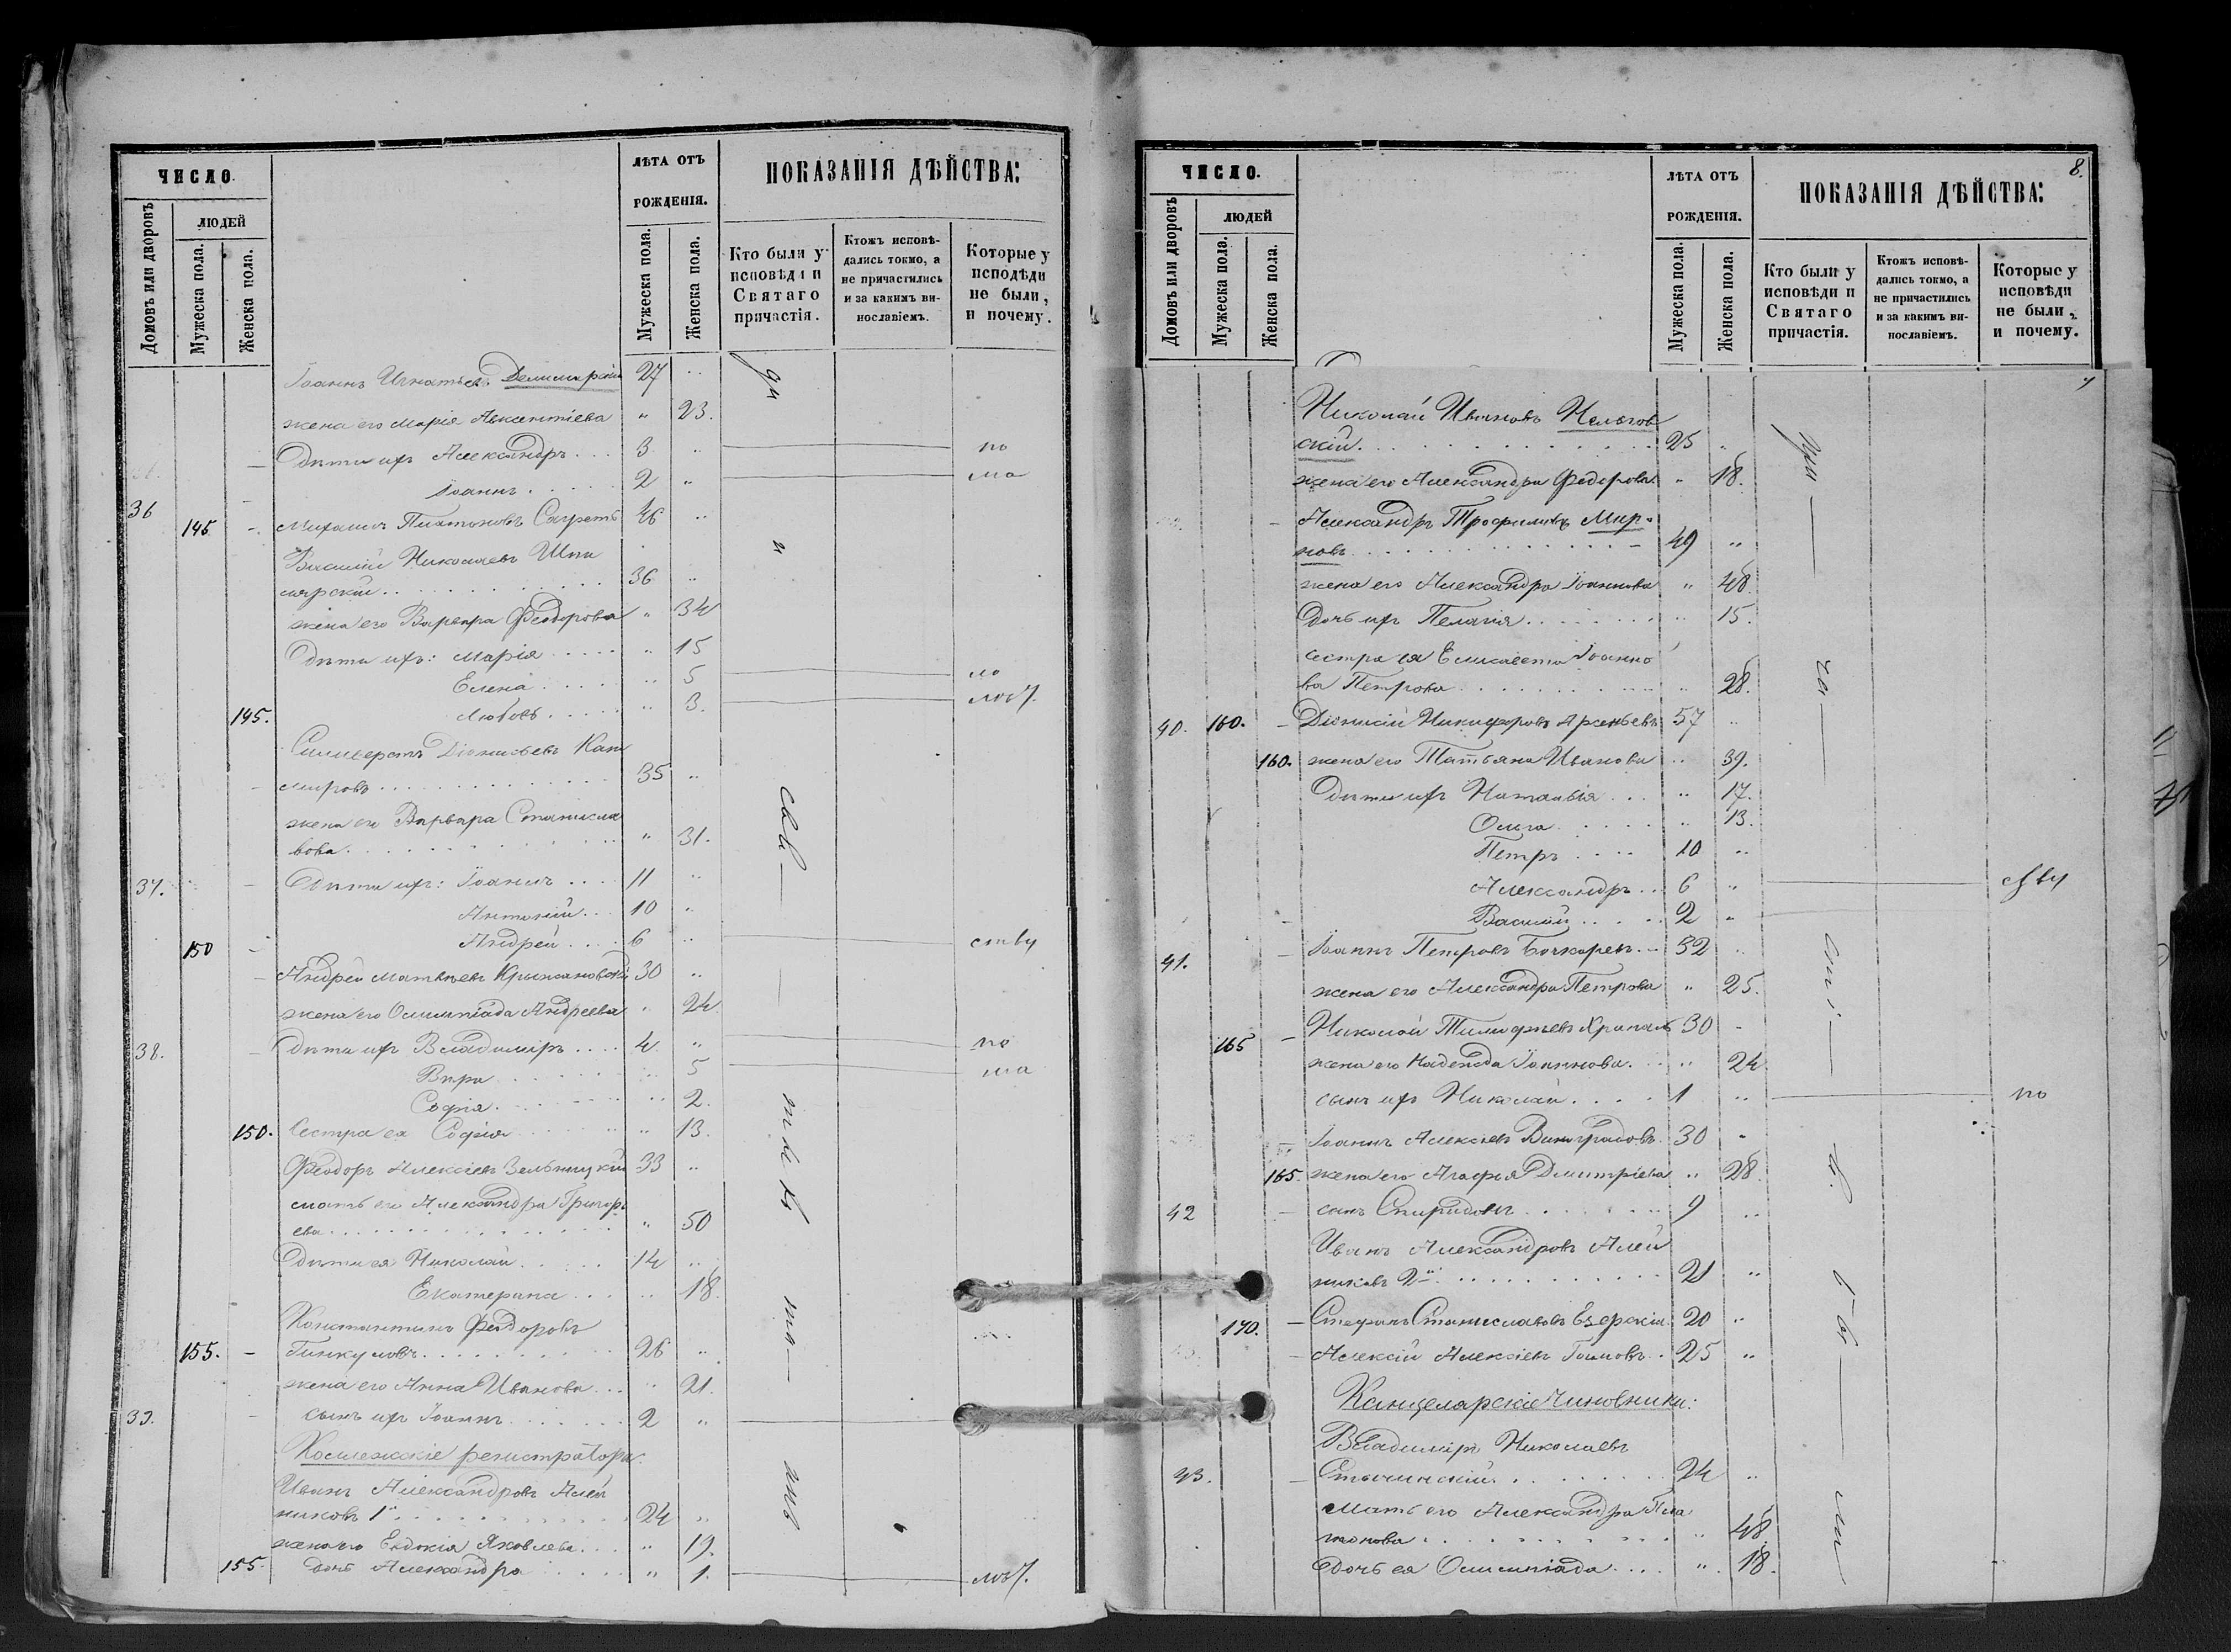 ЧИСЛО.
Домовъ или дворовъ
ЛЮДЕЙ
Мужеска пола.
Женска пола.
ЛѢТА ОТЪ
РОЖДЕНІЯ.
Мужеска пола.
Женска пола.
ПОКАЗАНІЯ ДѢЙСТВА:
Кто были у
исповѣди и
Святаго
причастія.
Ктожъ исповѣ-
дались токмо, а
не причастились
и за какимъ ви-
нославіемъ.
Которые у
исподѣди
не были,
и почему.
Іоаннъ Игнатьевъ 27 ..
жена его Марія Авксентіева " 23.
Дѣти ихъ Александръ . . . 3 .. по
Іоаннъ . . . . 2 " ма
36 145 - Михаилъ Платоновъ 46 ..
Василій Николаевъ Шпи
лярскій . . . . 36 ..
жена его Варвара Феодорова " 34
Дѣти ихъ: Марія . . . . " 15
Елена . . . . " 5 ло
145. Любовь . . . . " 3. лѣт.
Сильверстъ Діонисьевъ Кази
мировъ . . . . 35 ..
жена его Варвара Станисла
вова . . . . " 31.
37. - Дѣти ихъ: Іоаннъ . . . 11 "
Антоній . . . 10 "
150 - Андрей . . . . 6 .. ству
- Андрей Матвѣевъ Крыжановскій 30 ..
жена его Олимпіада Андреева " 24.
38. - Дѣти ихъ Владиміръ . . . . 4. " по
Вѣра . . . . " 5 ма
Софія . . . . " 2.
150. Сестра ея Софія . . . . " 13.
Феодоръ Алексіевъ 33 ..
мать его Александра Григорь
ева . . . . " 50
Дѣти ея Николай . . . . 14 ..
Екатерина . . . .. 18.
Константинъ Феодоровъ
155. - Гинкуловъ . . . . 26 ..
жена его Анна Иванова . . . " 21.
39. - сынъ ихъ Іоаннъ . . . . 2 "
Коллежскіе регистратора:
Иванъ Александровъ Алей
никовъ 1й . . . . 24 ..
жена его Евдокія Яковлева . . . " 19.
155. дочь Александра . . . . " 1. лѣт.
8.
ЧИСЛО.
Домовъ или дворовъ
ЛЮДЕЙ
Мужеска пола.
Женска пола.
ЛѢТА ОТЪ
РОЖДЕНІЯ.
Мужеска пола.
Женска пола.
ПОКАЗАНІЯ ДѢЙСТВА:
Кто были у
исповѣди и
Святаго
причастія.
Ктожъ исповѣ-
дались токмо, а
не причастились
и за какимъ ви-
нославіемъ.
Которые у
исповѣди
не были,
и почему.
Николай Ивановъ
скій . . . . 25 "
жена его Александра Федорова " 18.
- Александръ Трофимовъ Мир-
новъ . . . . 49 "
жена его Александра Іоаннова " 48.
Дочь ихъ Пелагія . . . . " 15.
сестра ея Елисавета Іоанно
ва Петрова . . . . " 28.
40. 160. - Діонисій Никифоровъ Арсеньевъ 57 ..
160. жена его Татьяна Иванова .. 39.
Дѣти ихъ Наталія . . . " 17.
Ольга . . . . " 13.
Петръ . . . . 10 ..
Александръ . . 6 "
- Василій . . . . 2 "
41. - Іоаннъ Петровъ Бочкаревъ . . 32 ..
жена его Александра Петрова " 25.
165 - Николай 30 -
жена его Надежда Іоаннова . . " 24
сынъ ихъ Николай . . . . 1 .. по
- Іоаннъ Алексіевъ Виноградовъ 30 "
165. жена его Агафья Дмитріева .. 28
42 - сынъ Спиридонъ . . . . 9 ..
Иванъ Александровъ Алей
никовъ 2й . . . . 21 "
170. - Стефанъ Станиславовъ Езерскій 20 "
- Алексій Алексіевъ . . 25 "
Канцеларскіе Чиновники:
Владиміръ Николаевъ
43. - . . . . 24 ..
Мать его Александра Пла
тонова . . . . " 48
дочь ея Олимпіада . . . . " 18.